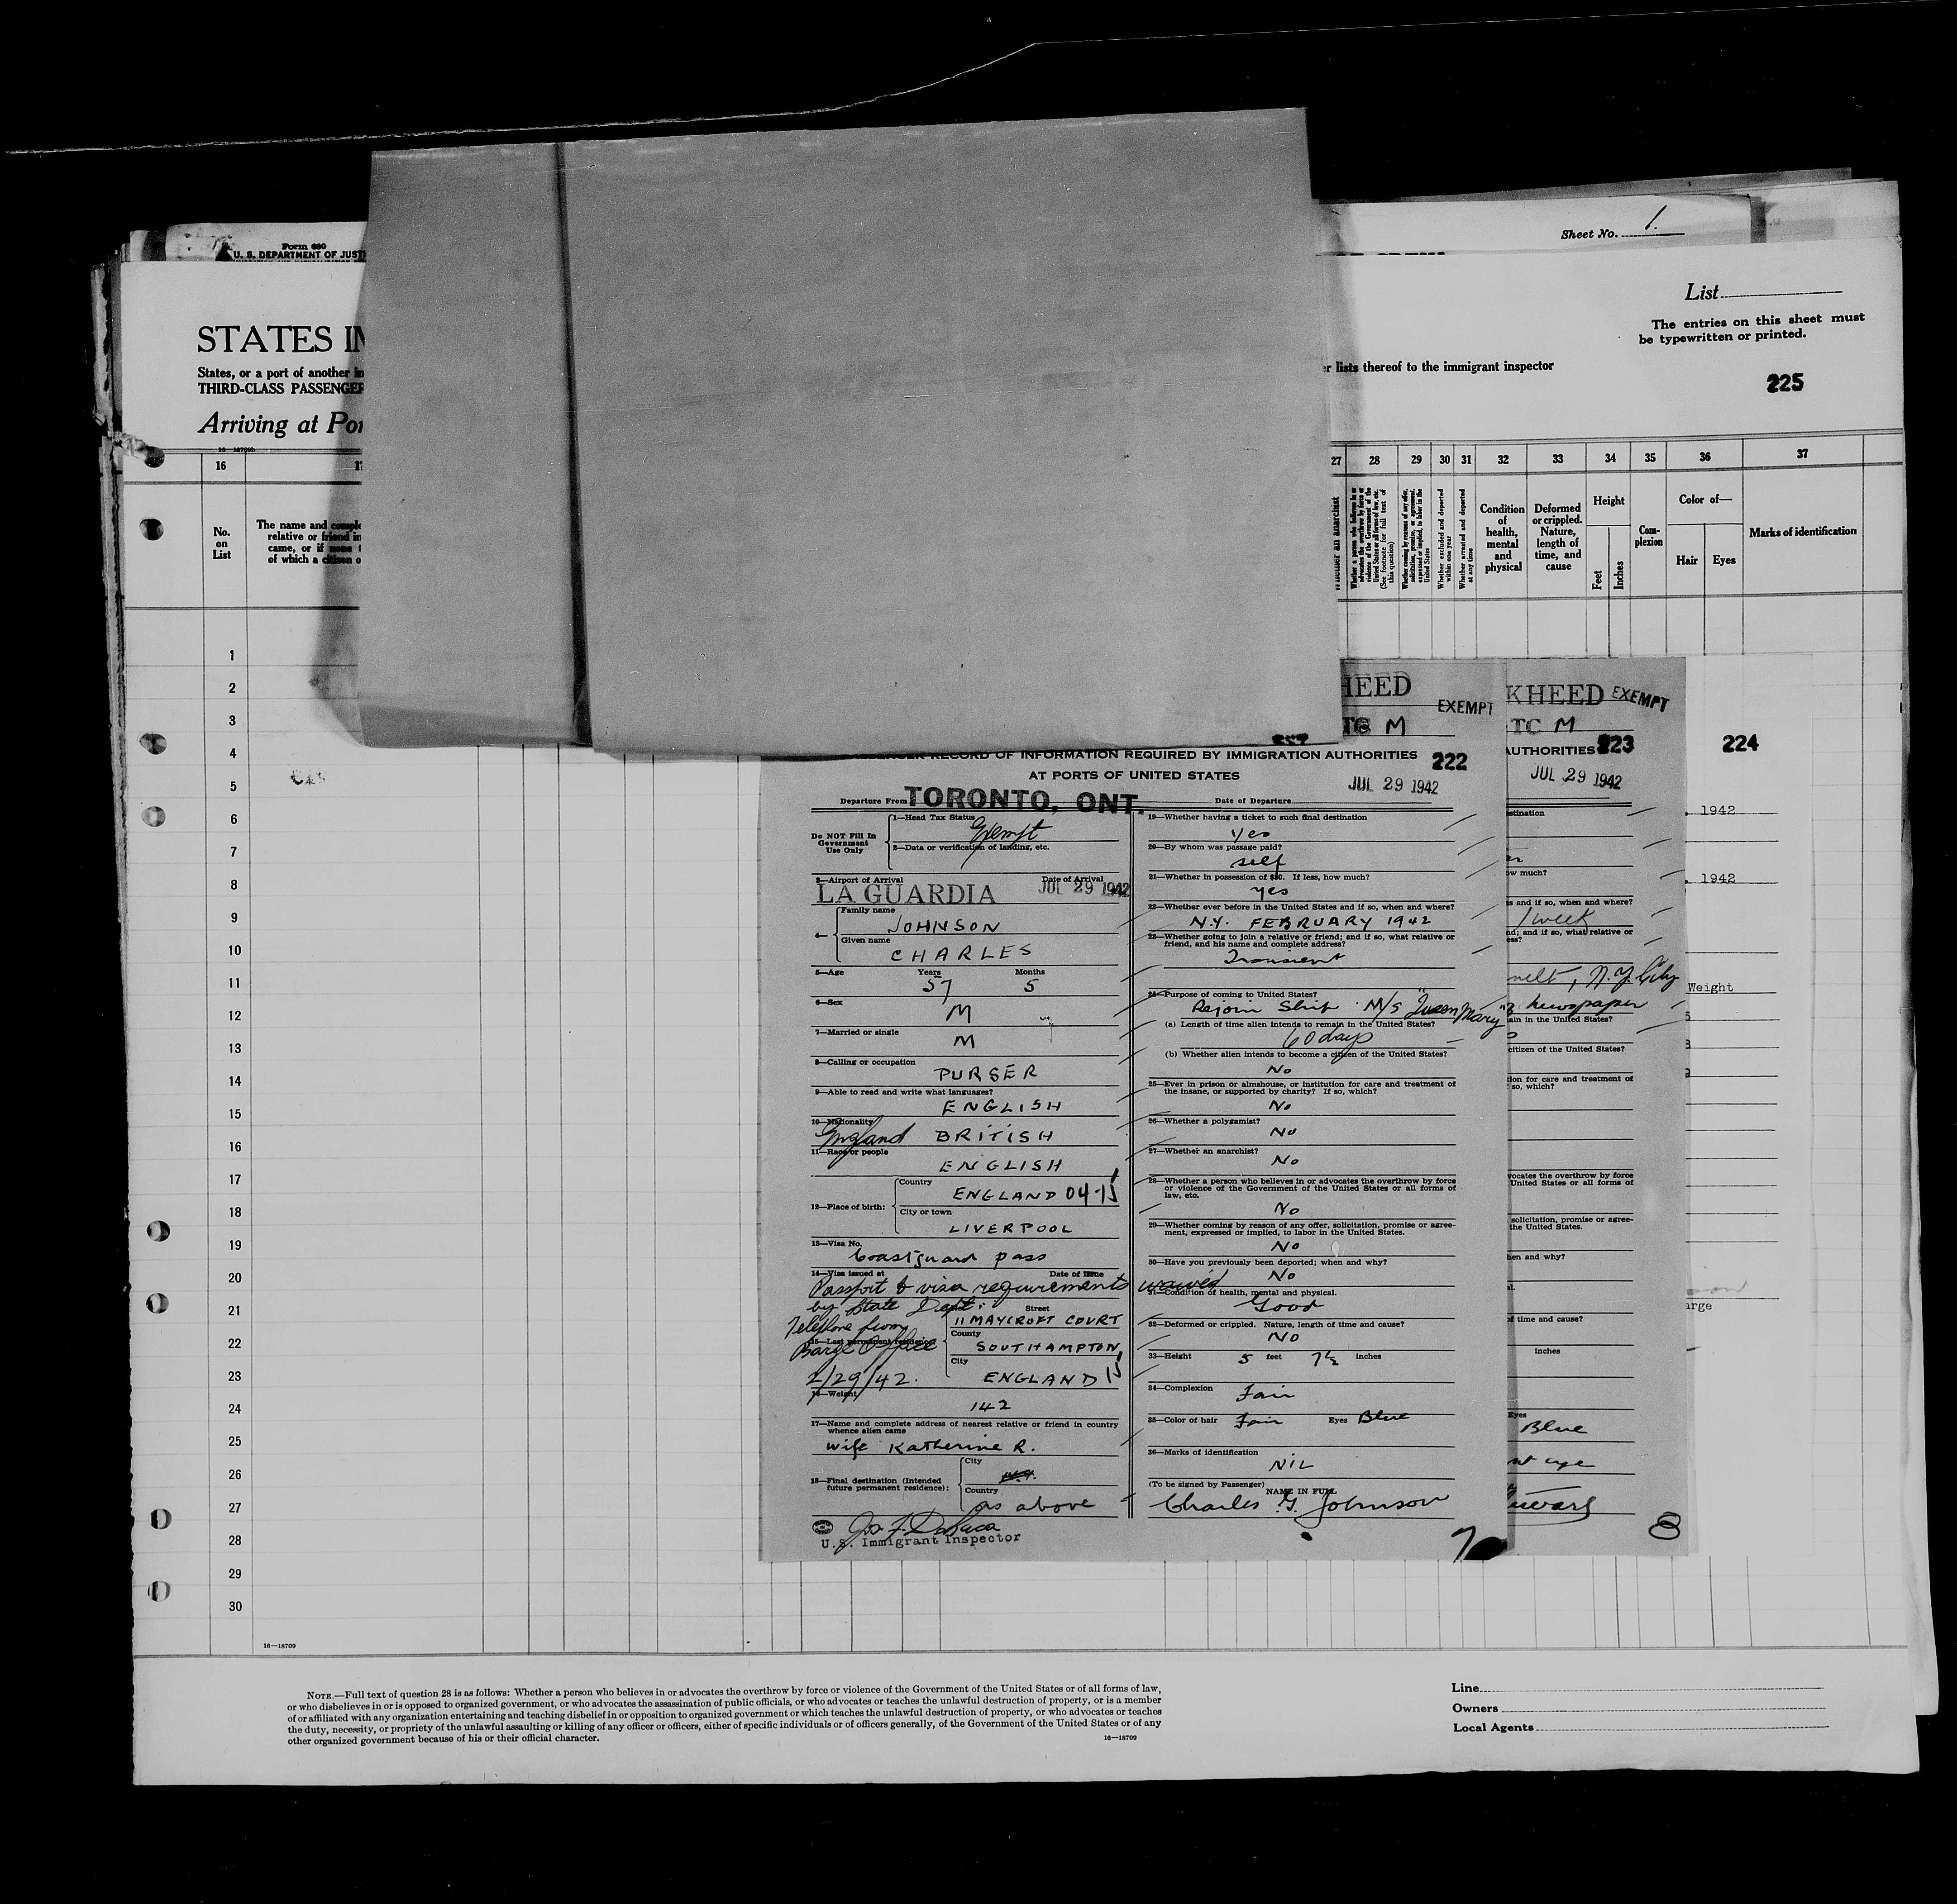 Form 680
U. S. DEPARTMENT OF JUST
Sheet No. 1.
STATES IN
States, or a port of another
THIRD-CLASS PASSENGER
Arriving at Por
List
The entries on this sheet must
be typewritten or printed.
lists thereof to the immigrant inspector
225
16—18709b
16
27 28 29 30 31 32 33 34 35 36 37
No.
on
List
The name and comple
relative or friend in
came, or if none
of which a citizen o
Whether an anarchist
Whether a person who believes in or
advocates the overthrow by force or
violence of the Government of the
United States or all forms of law, etc.
(See footnote for full text of
this question)
Whether coming by reasons of any offer,
solicitation, promise, or agreement,
expressed or implied, to labor in the
United States
Whether excluded and deported
within one year
Whether arrested and deported
at any time
Condition
of
health,
mental
and
physical
Deformed
or crippled.
Nature,
length of
time, and
cause
Height
Feet
Inches
Com-
plexion
Color of—
Hair
Eyes
Marks of identification
1
2
3
4
5
6
7
8
9
10
11
12
13
14
15
16
17
18
19
20
21
22
23
24
25
26
27
28
29
30
HEED
EXEMPT
TC M
RECORD OF INFORMATION REQUIRED BY IMMIGRATION AUTHORITIES 222
AT PORTS OF UNITED STATES
JUL 29 1942
Departure From TORONTO, ONT. Date of Departure
Do NOT Fill In
Government
Use Only
1—Head Tax Status
Exempt
2—Data or verification of landing, etc.
3—Airport of Arrival Date of Arrival
LA GUARDIA JUL 29 1942
4—
Family name
JOHNSON
Given name
CHARLES
5—Age Years Months
57 5
6—Sex
M
7—Married or single
M
8—Calling or occupation
PURSER
9—Able to read and write what languages?
ENGLISH
10—Nationality
England BRITISH
11—Race or people
ENGLISH
12—Place of birth:
Country
ENGLAND 04-15
City or town
LIVERPOOL
13—Visa No.
Coastguard pass
14—Visa issued at Date of Issue
Passport & visa requirements waived
by State Dept.
Telephone from
Barge Office
15—Last permanent residence
Street
11 MAYCROFT COURT
County
SOUTHAMPTON
City
ENGLAND 15
/29/42.
16—Weight
142
17—Name and complete address of nearest relative or friend in country
whence alien came
Wife Katherine R.
18—Final destination (Intended
future permanent residence):
City
Country
as above
U.S. Immigrant Inspector
19—Whether having a ticket to such final destination
Yes
20—By whom was passage paid?
self
21—Whether in possession of $50. If less, how much?
yes
22—Whether ever before in the United States and if so, when and where?
N.Y. FEBRUARY 1942
23—Whether going to join a relative or friend; and if so, what relative or
friend, and his name and complete address?
Transient
24—Purpose of coming to United States?
Rejoin Ship M/S "Queen Mary"
(a) Length of time alien intends to remain in the United States?
60 days
(b) Whether alien intends to become a citizen of the United States?
No
25—Ever in prison or almshouse, or institution for care and treatment of
the insane, or supported by charity? If so, which?
No
26—Whether a polygamist?
No
27—Whether an anarchist?
No
28—Whether a person who believes in or advocates the overthrow by force
or violence of the Government of the United States or all forms of
law, etc.
No
29—Whether coming by reason of any offer, solicitation, promise or agree-
ment, expressed or implied, to labor in the United States.
No
30—Have you previously been deported; when and why?
No
31—Condition of health, mental and physical.
Good
32—Deformed or crippled. Nature, length of time and cause?
No
33—Height 5 feet 7½ inches
34—Complexion Fair
35—Color of hair Fair Eyes Blue
36—Marks of identification
NIL
(To be signed by Passenger)
NAME IN FULL
Charles G. Johnson
7
KHEED EXEMPT
TC M
AUTHORITIES 223
JUL 29 1942
stination
ow much?
es and if so, when and where?
1 week
nd; and if so, what relative or
ess?
N.Y. City
newspaper
ain in the United States?
citizen of the United States?
ion for care and treatment of
so, which?
vocates the overthrow by force
United States or all forms of
solicitation, promise or agree-
the United States.
hen and why?
al.
of time and cause?
inches
Eyes
Blue
8
224
1942
1942
Weight
arge
16—18709
NOTE.—Full text of question 28 is as follows: Whether a person who believes in or advocates the overthrow by force or violence of the Government of the United States or of all forms of law,
or who disbelieves in or is opposed to organized government, or who advocates the assassination of public officials, or who advocates or teaches the unlawful destruction of property, or is a member
of or affiliated with any organization entertaining and teaching disbelief in or opposition to organized government or which teaches the unlawful destruction of property, or who advocates or teaches
the duty, necessity, or propriety of the unlawful assaulting or killing of any officer or officers, either of specific individuals or of officers generally, of the Government of the United States or of any
other organized government because of his or their official character.
16—18709
Line
Owners
Local Agents